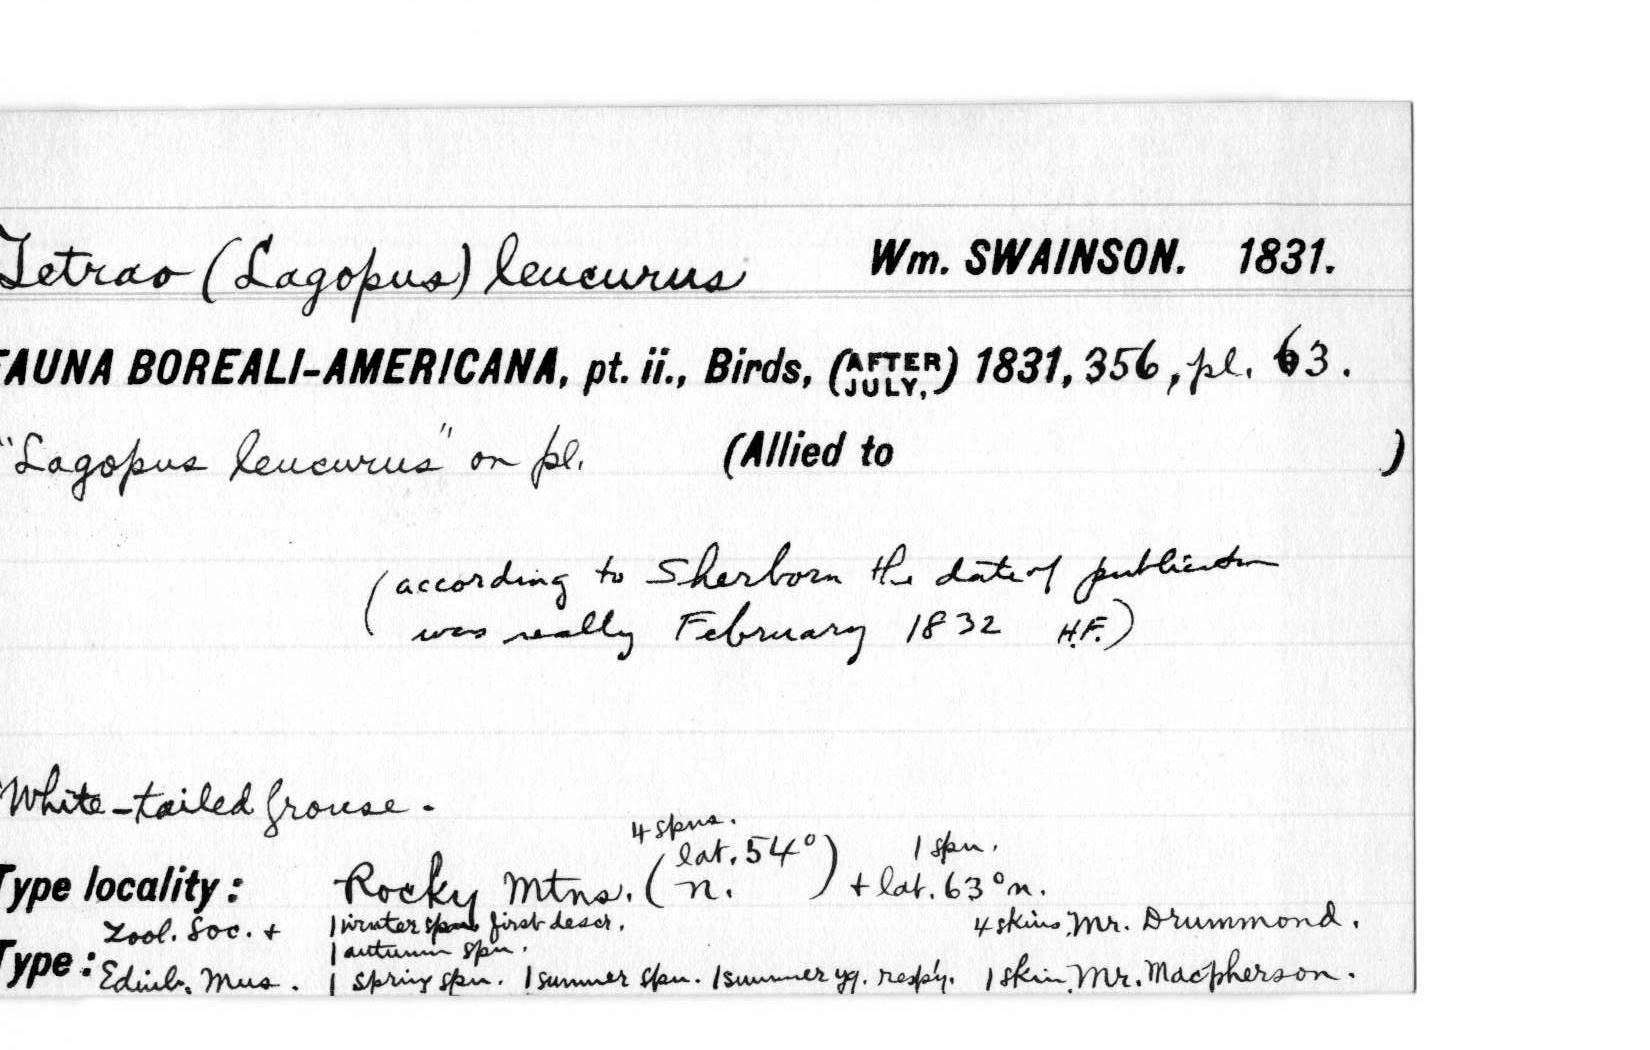 Tetrao (Lagopus) leucurus Wm. SWAINSON. 1831.
FAUNA BOREALI-AMERICANA, pt. ii., Birds, (AFTER JULY,) 1831, 356, pl. 63.
"Lagopus leucurus" on pl. (Allied to )
(according to Sherborn the date of publication
was really February 1832 H.F.)
White-tailed Grouse.
4 spns. 1 spn.
Type locality: Rocky Mtns. (lat. 54° n.) + lat. 63° n.
Zool. Soc. + 1 winter spn. first descr. 4 skins, Mr. Drummond.
1 autumn spn.
Type: Edinb. Mus. 1 spring spn. 1 summer spn. 1 summer yg. resp'y. 1 skin, Mr. Macpherson.